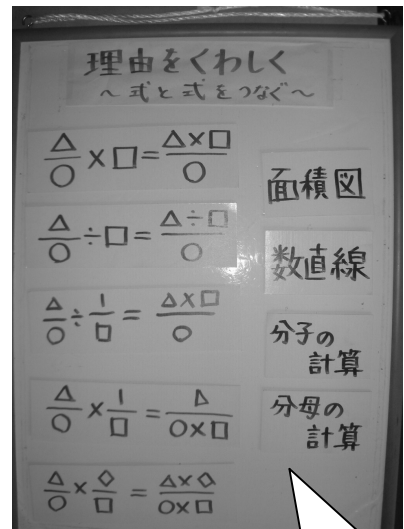 理由をくわしく
～式と式をつなぐ～
△/○×□=△×□/○
△/○÷□=△÷□/○
△/○÷1/□=△×□/○
△/○×1/□=△/○×□
△/○×◇/□=△×◇/○×□
面積図
数直線
分子の
計算
分母の
計算